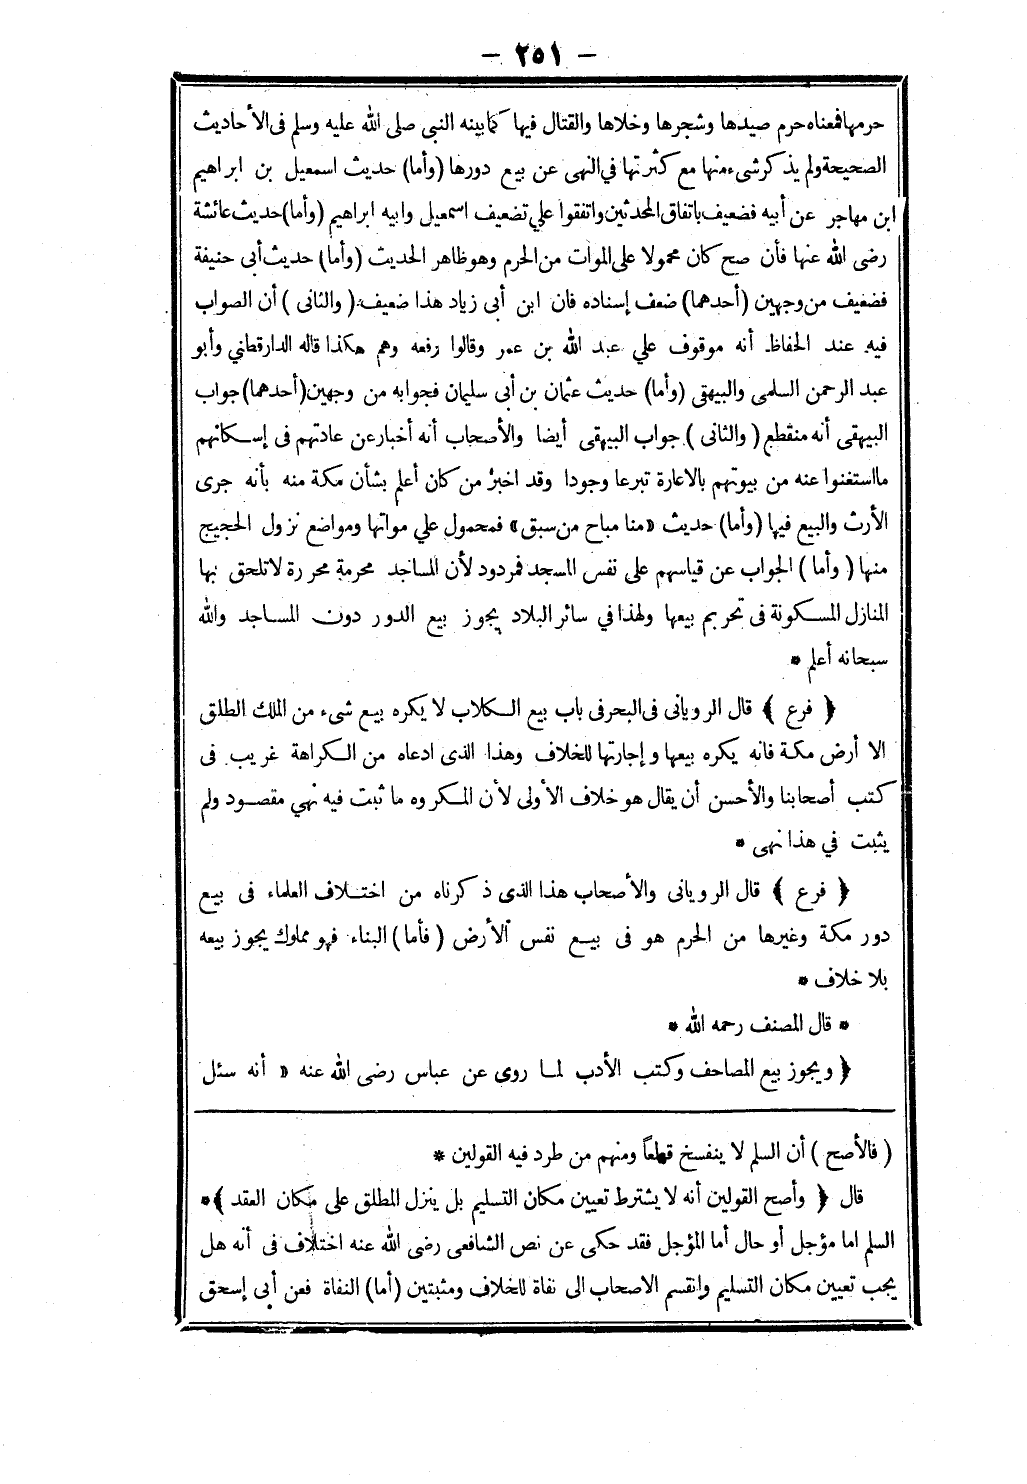 – ٢٥١ –
حرمها فمعناه حرم صيدها وشجرها وخلاها والقتال فيها كما بينه النبى صلى الله عليه وسلم فى الأحاديث
الصحيحة ولم يذكر شىء منها مع كثرتها في النهى عن بيع دورها (وأما) حديث اسمعيل بن ابراهيم
ابن مهاجر عن أبيه فضعيف باتفاق المحدثين واتفقوا علي تضعيف اسمعيل وابيه ابراهيم (وأما) حديث عائشة
رضى الله عنها فأن صح كان محمولا على الموات من الحرم وهو ظاهر الحديث (وأما) حديث أبى حنيفة
فضعيف من وجهين (أحدهما) ضعف إسناده فان ابن أبى زياد هذا ضعيف (والثانى) أن الصواب
فيه عند الحفاظ أنه موقوف علي عبد الله بن عمر وقالوا رفعه وهم هكذا قاله الدارقطني وأبو
عبد الرحمن السلمى والبيهقى (وأما) حديث عثمان بن أبى سليمان فجوابه من وجهين (أحدهما) جواب
البيهقى أنه منقطع (والثانى) جواب البيهقى أيضا والأصحاب أنه أخبار عن عادتهم فى إسكانهم
ما استغنوا عنه من بيوتهم بالاعارة تبرعا وجودا وقد اخبر من كان أعلم بشأن مكة منه بأنه جرى
الأرث والبيع فيها (وأما) حديث «منا مباح من سبق» فمحمول علي مواتها ومواضع نزول الحجيج
منها (وأما) الجواب عن قياسهم على نفس المسجد فمردود لأن المساجد محرمة محررة لا تلحق بها
المنازل المسكونة فى تحريم بيعها ولهذا في سائر البلاد يجوز بيع الدور دون المساجد والله
سبحانه أعلم *
﴿ فرع ﴾ قال الرويانى فى البحر فى باب بيع الكلاب لا يكره بيع شىء من الملك الطلق
الا أرض مكة فانه يكره بيعها وإجارتها للخلاف وهذا الذى ادعاه من الكراهة غريب فى
كتب أصحابنا والأحسن أن يقال هو خلاف الأولى لأن المكروه ما ثبت فيه نهي مقصود ولم
يثبت في هذا نهى *
﴿ فرع ﴾ قال الرويانى والأصحاب هذا الذى ذكرناه من اختلاف العلماء فى بيع
دور مكة وغيرها من الحرم هو فى بيع نفس الأرض (فأما) البناء فهو مملوك يجوز بيعه
بلا خلاف *
* قال المصنف رحمه الله *
﴿ ويجوز بيع المصاحف وكتب الأدب لما روى عن عباس رضى الله عنه « أنه سئل
(فالأصح) أن السلم لا ينفسخ قطعاً ومنهم من طرد فيه القولين *
قال ﴿ وأصح القولين أنه لا يشترط تعيين مكان التسليم بل ينزل المطلق على مكان العقد ﴾ *
السلم اما مؤجل أو حال أما المؤجل فقد حكى عن نص الشافعى رضى الله عنه اختلاف فى أنه هل
يجب تعيين مكان التسليم وانقسم الاصحاب الى نفاة للخلاف ومثبتين (أما) النفاة فعن أبى إسحق